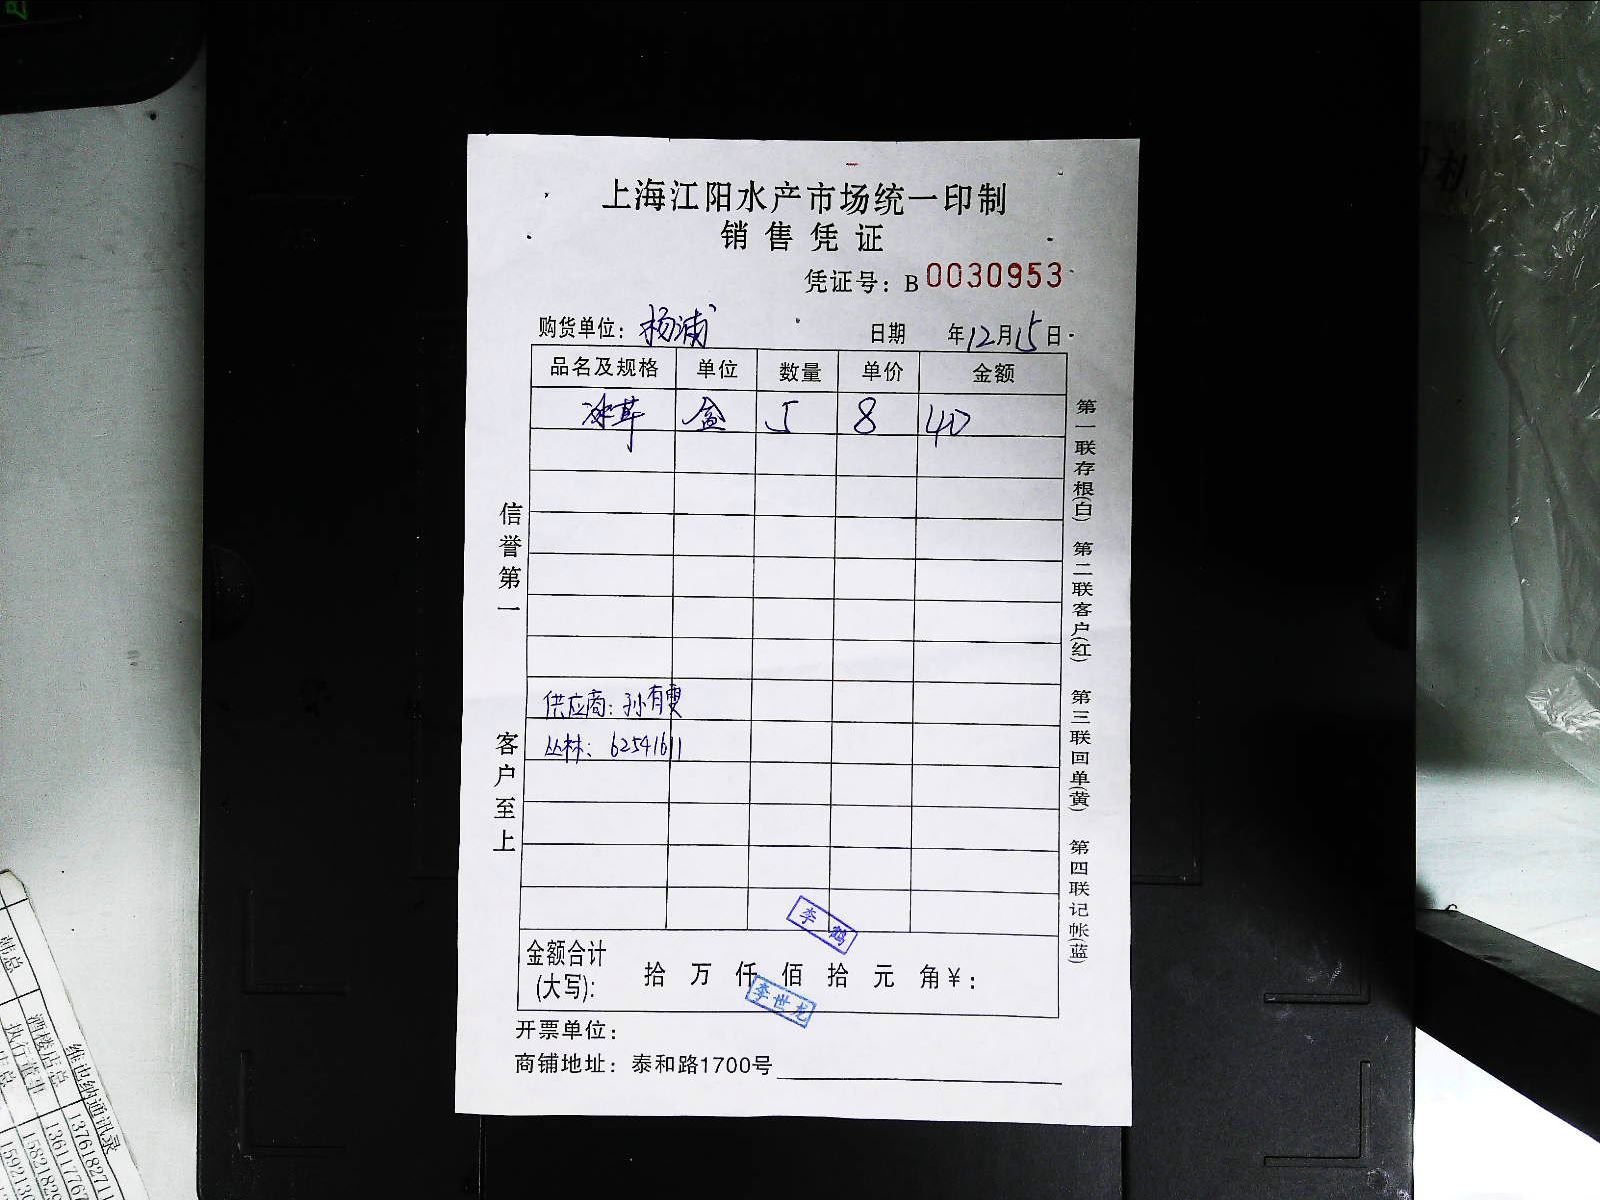 上海江阳水产市场统一印制
销售凭证
凭证号：B 0030953
购货单位：杨浦 日期 年12月15日
品名及规格 单位 数量 单价 金额
冰草 盒 5 8 40
供应商：孙有雯
丛林：62541611
金额合计
(大写)： 拾 万 仟 佰 拾 元 角 ¥：
李鹤
李世龙
开票单位：
商铺地址：泰和路1700号
信誉第一
客户至上
第一联存根(白) 第二联客户(红) 第三联回单(黄) 第四联记帐(蓝)
维也纳通讯录
酒楼店总
执行董事
韩总